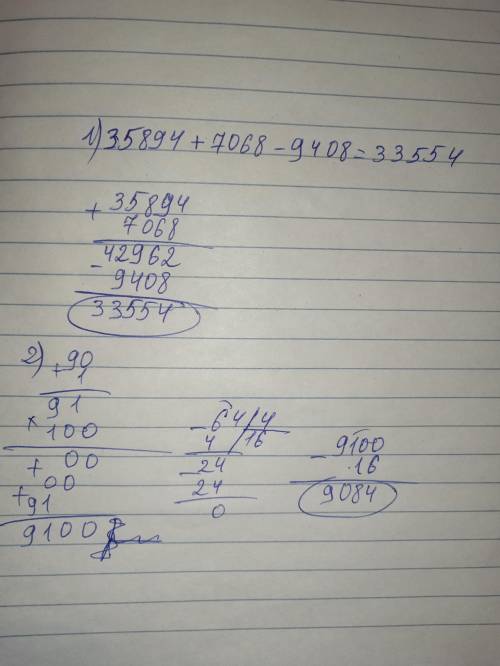 1) 35894 + 7068 - 9408 = 33554
+ 35894
7068
42962
- 9408
33554
2) + 90
1
91
× 100
+ 00
00
+ 91
9100
- 64 / 4
4 / 16
- 24
24
0
- 9100
16
9084